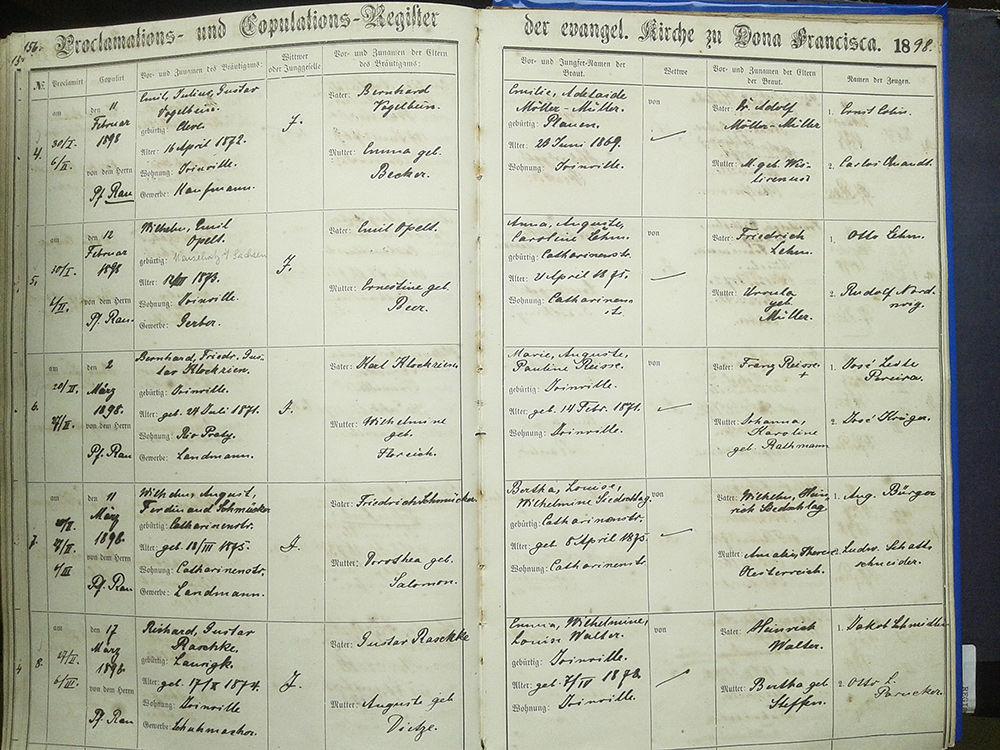 156.
Proclamations- und Copulations-Register
der evangel. Kirche zu Dona Francisca. 1898.
№ Proclamirt Copulirt Vor- und Zunamen des Bräutigams: Wittwer oder Junggeselle Vor- und Zunamen der Eltern des Bräutigams:
Vor- und Jungfer-Namen der Braut. Wettwe Vor- und Zunamen der Eltern der Braut. Namen der Zeugen.
4.
am 30/I. 6/II.
den 11 Februar 1898
von dem Herrn Pf. Rau
Emil, Julius, Gustav
Vogelbein.
gebürtig: Cleve.
Alter: 16 April 1872.
Wohnung: Joinville.
Gewerbe: Kaufmann.
J.
Vater: Bernhard
Vogelbein.
Mutter: Emma geb.
Becker.
Emilie, Adelaide
Möller-Müller.
gebürtig: Plauen.
Alter: 20 Juni 1869.
Wohnung: Joinville.
von
Vater: Adolf
Möller-Müller
Mutter: M. geb.
1. Ernst
2. Carlos
5.
am 30/I. 6/II.
den 12
Februar
1898
von dem Herrn
Pf. Rau.
Wilhelm, Emil
Opelt.
gebürtig: Sachsen
Alter: 1873.
Wohnung: Joinville.
Gewerbe: Gerber.
J.
Vater: Emil Opelt.
Mutter: Ernestine geb.
Beer.
Anna, Auguste,
Caroline Lehm.
gebürtig: Catharinenstr.
Alter: 2 April 1875.
Wohnung: Catharinenstr.
von
Vater: Friedrich
Lehm.
Mutter: Ursula
geb.
Müller.
1. Otto Lehm.
2. Rudolf
6.
am 20/II. 27/II.
den 2
März
1898.
von dem Herrn
Pf. Rau
Bernhard, Friedr. Gustav
gebürtig: Joinville.
Alter: geb. 24 Juli 1871.
Wohnung: Rio Prata.
Gewerbe: Landmann.
J.
Vater: Karl
Mutter: Wilhelmine
geb.
Marie, Auguste,
Pauline Reisse.
gebürtig: Joinville.
Alter: geb. 14 Febr. 1871.
Wohnung: Joinville.
von
Vater: Franz Reisse. +
Mutter: Johanna,
Karoline
geb. Rathmann
1. José Leite
Pereira.
2. José Krüger.
7.
am 20/II. 27/II. 6/III
den 11
März
1898.
von dem Herrn
Pf. Rau
Wilhelm, August,
Ferdinand Schmücker
gebürtig: Catharinenstr.
Alter: geb 18/III 1875.
Wohnung: Catharinenstr.
Gewerbe: Landmann.
J.
Vater: Friedrich Schmücker
Mutter: Dorothea geb.
Salomon.
Bertha, Louise,
Wilhelmine Siedschlag.
gebürtig: Catharinenstr.
Alter: geb 8 April 1875.
Wohnung: Catharinenstr.
von
Vater: Wilhelm, Heinrich Siedschlag
Mutter: Amalie, Therese
Oesterreich.
1. Aug. Bürger
2. Ludw. Schattschneider.
8.
am 27/II. 6/III.
den 17
März
1898
von dem Herrn
Pf. Rau
Richard, Gustav
Raschke.
gebürtig: Laurigk.
Alter: geb. 1874.
Wohnung: Joinville
Gewerbe: Schuhmacher.
J.
Vater: Gustav Raschke
Mutter: Auguste geb
Dietze.
Emma, Wilhelmine,
Louise Walter.
gebürtig: Joinville.
Alter: geb. 7/IV 1878.
Wohnung: Joinville.
von
Vater: Heinrich
Walter.
Mutter: Bertha geb
Steffen.
1. Jakob Schmidlin
2. Otto L.
Parucker.